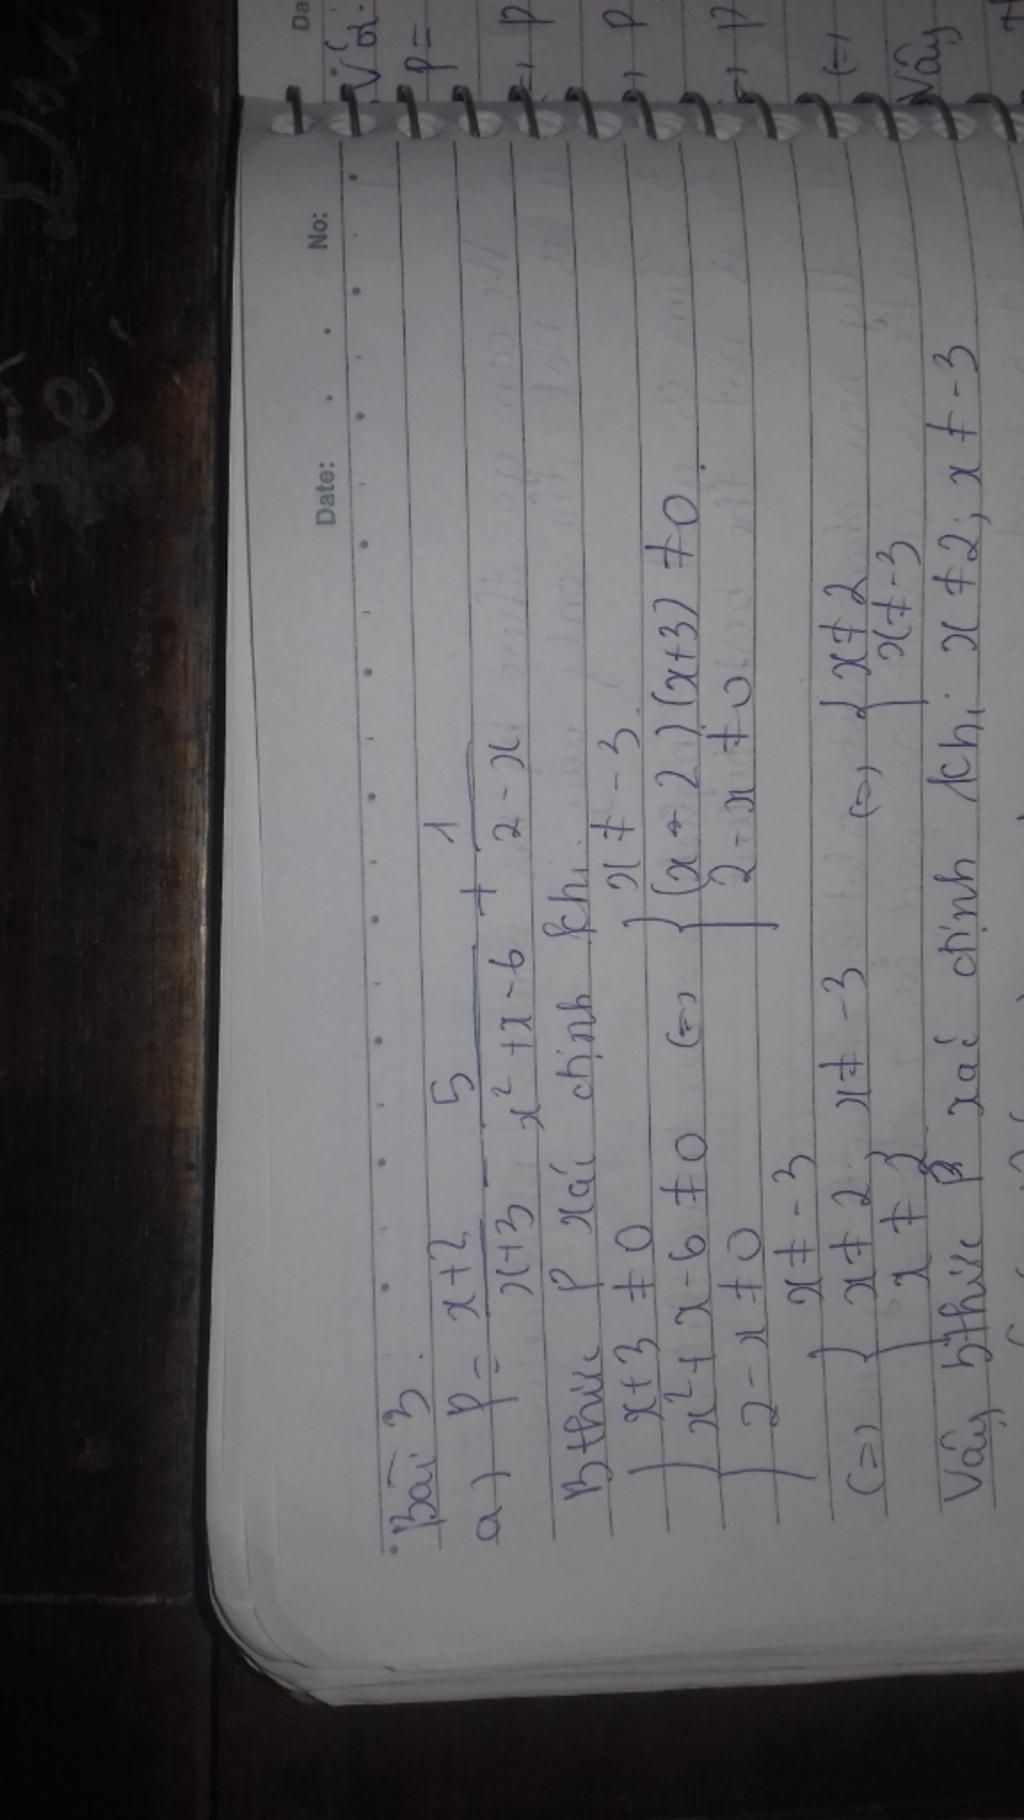 Date: No:
Bài 3
a) P = x+2/x+3 - 5/x²+x-6 + 1/2-x
Bthức P xác định khi
{ x+3 ≠ 0 { x ≠ -3
x²+x-6 ≠ 0 (=) { (x-2)(x+3) ≠ 0
2-x ≠ 0 2-x ≠ 0
x ≠ -3
(=) { x ≠ 2; x ≠ -3 (=) { x ≠ 2
x ≠ 2 x ≠ -3
Vậy bthức P xác định khi x ≠ 2; x ≠ -3
Da
Với
P =
(=) P
(=) P
(=) P
(=)
Vậy